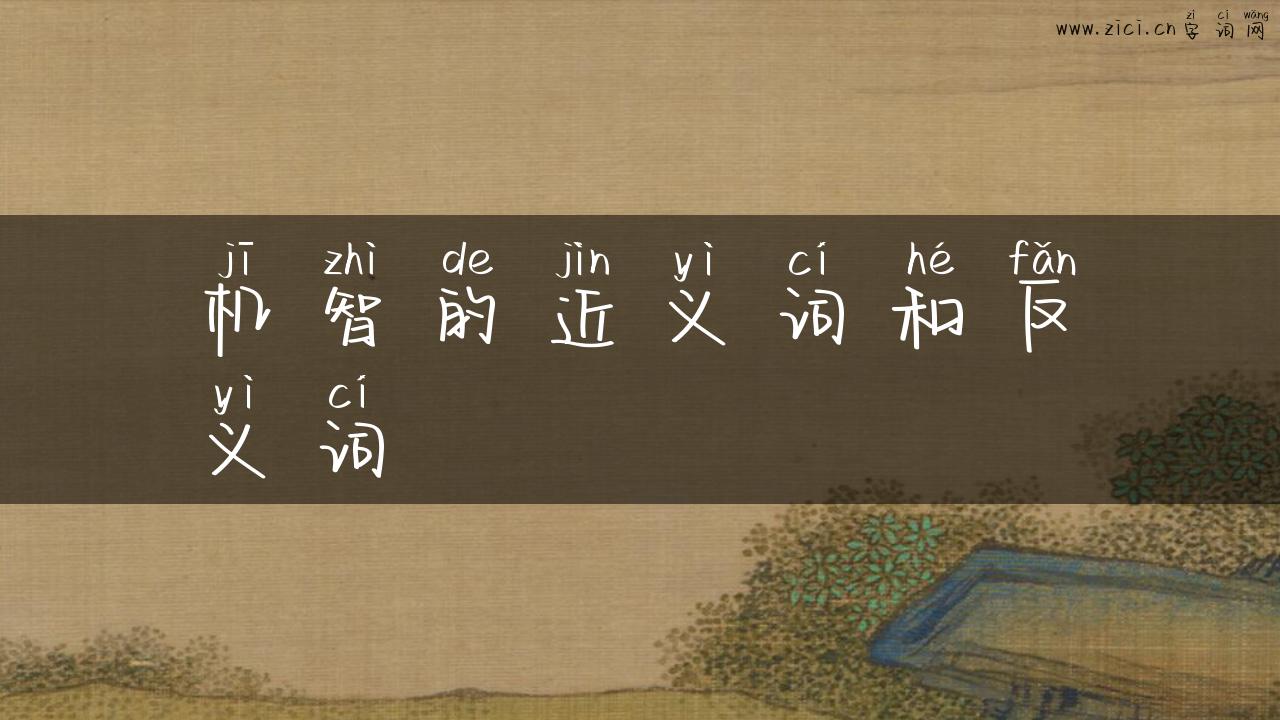 zì cí wǎng
www.zici.cn 字词网
jī zhì de jìn yì cí hé fǎn
机智的近义词和反
yì cí
义词